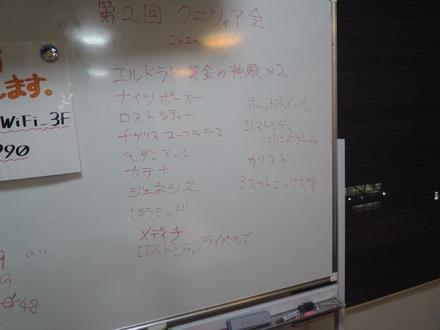 第2回 クニツィア会
202
エルドラド 黄金の神殿 ×2
ナイツポーカー
ロストシティー
チグリス ユーフラテス
モダンアート
カテナ
ジェネシス
ピラミッド
メディチ
ロストシティ:ライベルズ
ホットホイール
ロストシティ
ボードゲーム
カリスト
ミスカトニック大学
ます。
WiFi_3F
990
48